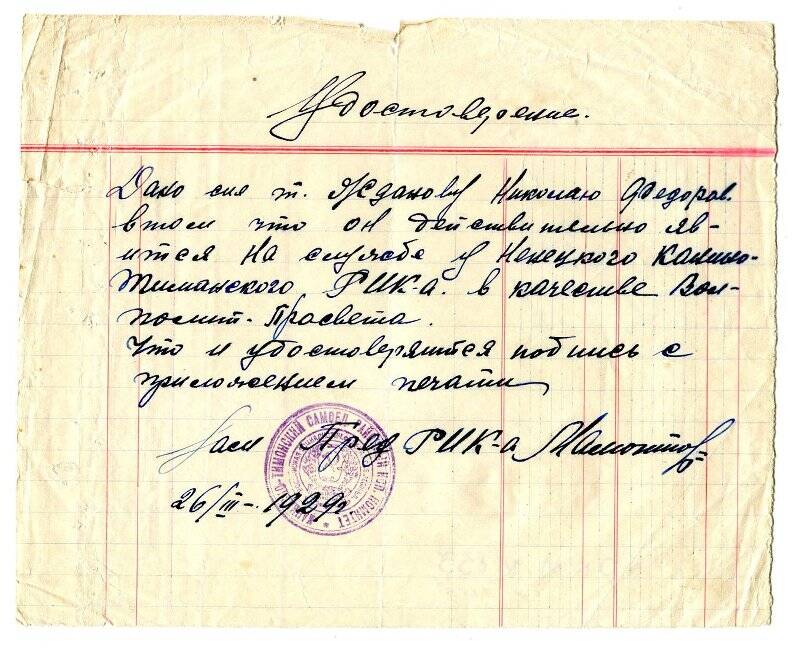 Удостоверение.
Дано сия т. Жданову Николаю Федоров.
втом что он действительно яв-
ится на службе у Ненецкого Канино-
Тиманского РИК-а. в качестве Вол-
полит-Просвета.
Что и удостоверяится подпись с
приложением печати
Зам Пред РИК-а Мамонтов
26/III-1929г
КАНИНО-ТИМОНСКИЙ САМОЕД. РАЙОННЫЙ ИСП. КОМИТЕТ